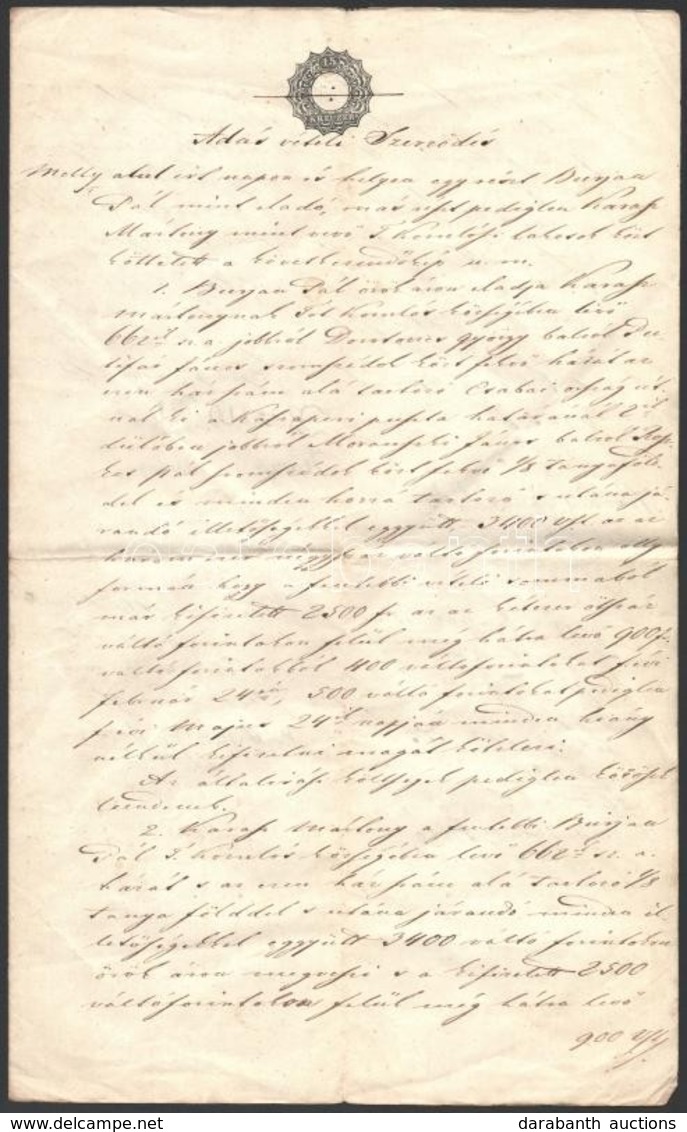 15
KREUZER
Adás vételi Szerződés
Melly alul írt napon és helyen egyrészt Burján
Pál mint eladó, más részt pediglen Karasz
Mártony mint vevő T. Komlósi lakosok közt
köttetett a következendőkép u. m.
1. Burján Pál örök áron eladja Karasz
Mártonynak Tót Komlós községében levő
662 sz. a jobbról György balról
János szomszédok közt fekvő házát az
ezen ház szám alá tartozó Csabai ország út
nál ki a Kaszaperi puszta határánál
dülőben jobbról János balról
Pál szomszédok közt fekvő 1/8 tanyaföld
del és minden hozzá tartozó s utána já
randó illetőségekkel eggyütt 3400 vft az az
három ezer négyszáz váltó forintokban olly
formán hogy a fentebbi vételi sommából
már kifizetett 2500 fr az az kétezer ötszáz
váltó forintokon felül még hátra levő 900 f
váltó forintokból 400 váltóforintokat f évi
februar 24én, 500 váltó forintokat pediglen
f évi Majus 24k napján minden hiány
nélkül kifizetni magát kötelezi.
Az általírási költségek pediglen közösek
leendenek.
2. Karasz Mártony a fentebbi Burján
Pál T. Komlós községében levő 662 sz. a.
házát s az ezen ház szám alá tartozó 1/8
tanya földdel s utána járandó minden il
letőségekkel eggyütt 3400 váltó forintokon
örök áron megveszi s a kifizetett 2500
váltóforintokon felül még hátra levő
900 vft
www.delcampe.net
darabanth auctions